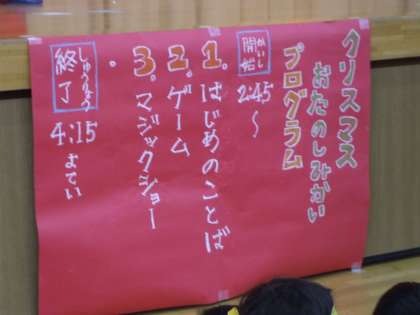 クリスマス
おたのしみかい
プログラム
開始
かいし
2:45〜
1. はじめのことば
2. ゲーム
3. マジックショー
終了
しゅうりょう
4:15よてい